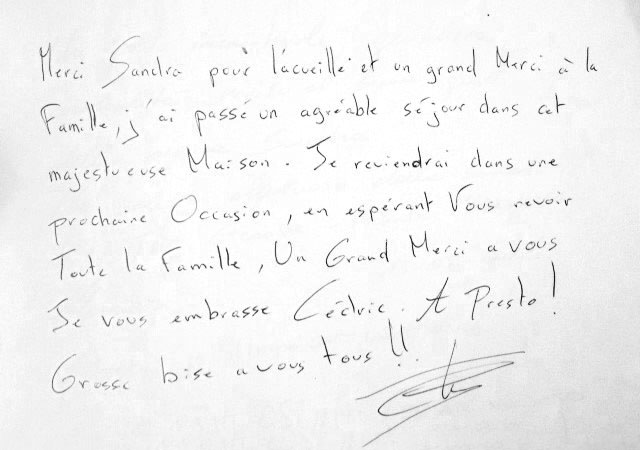 Merci Sandra pour l'acueille et un grand Merci à la
Famille, j'ai passé un agréable séjour dans cet
majestueuse Maison. Je reviendrai dans une
prochaine Occasion, en espérant Vous revoir
Toute la Famille, Un Grand Merci a vous
Je vous embrasse Cédric. A Presto!
Grosse bise a vous tous!!